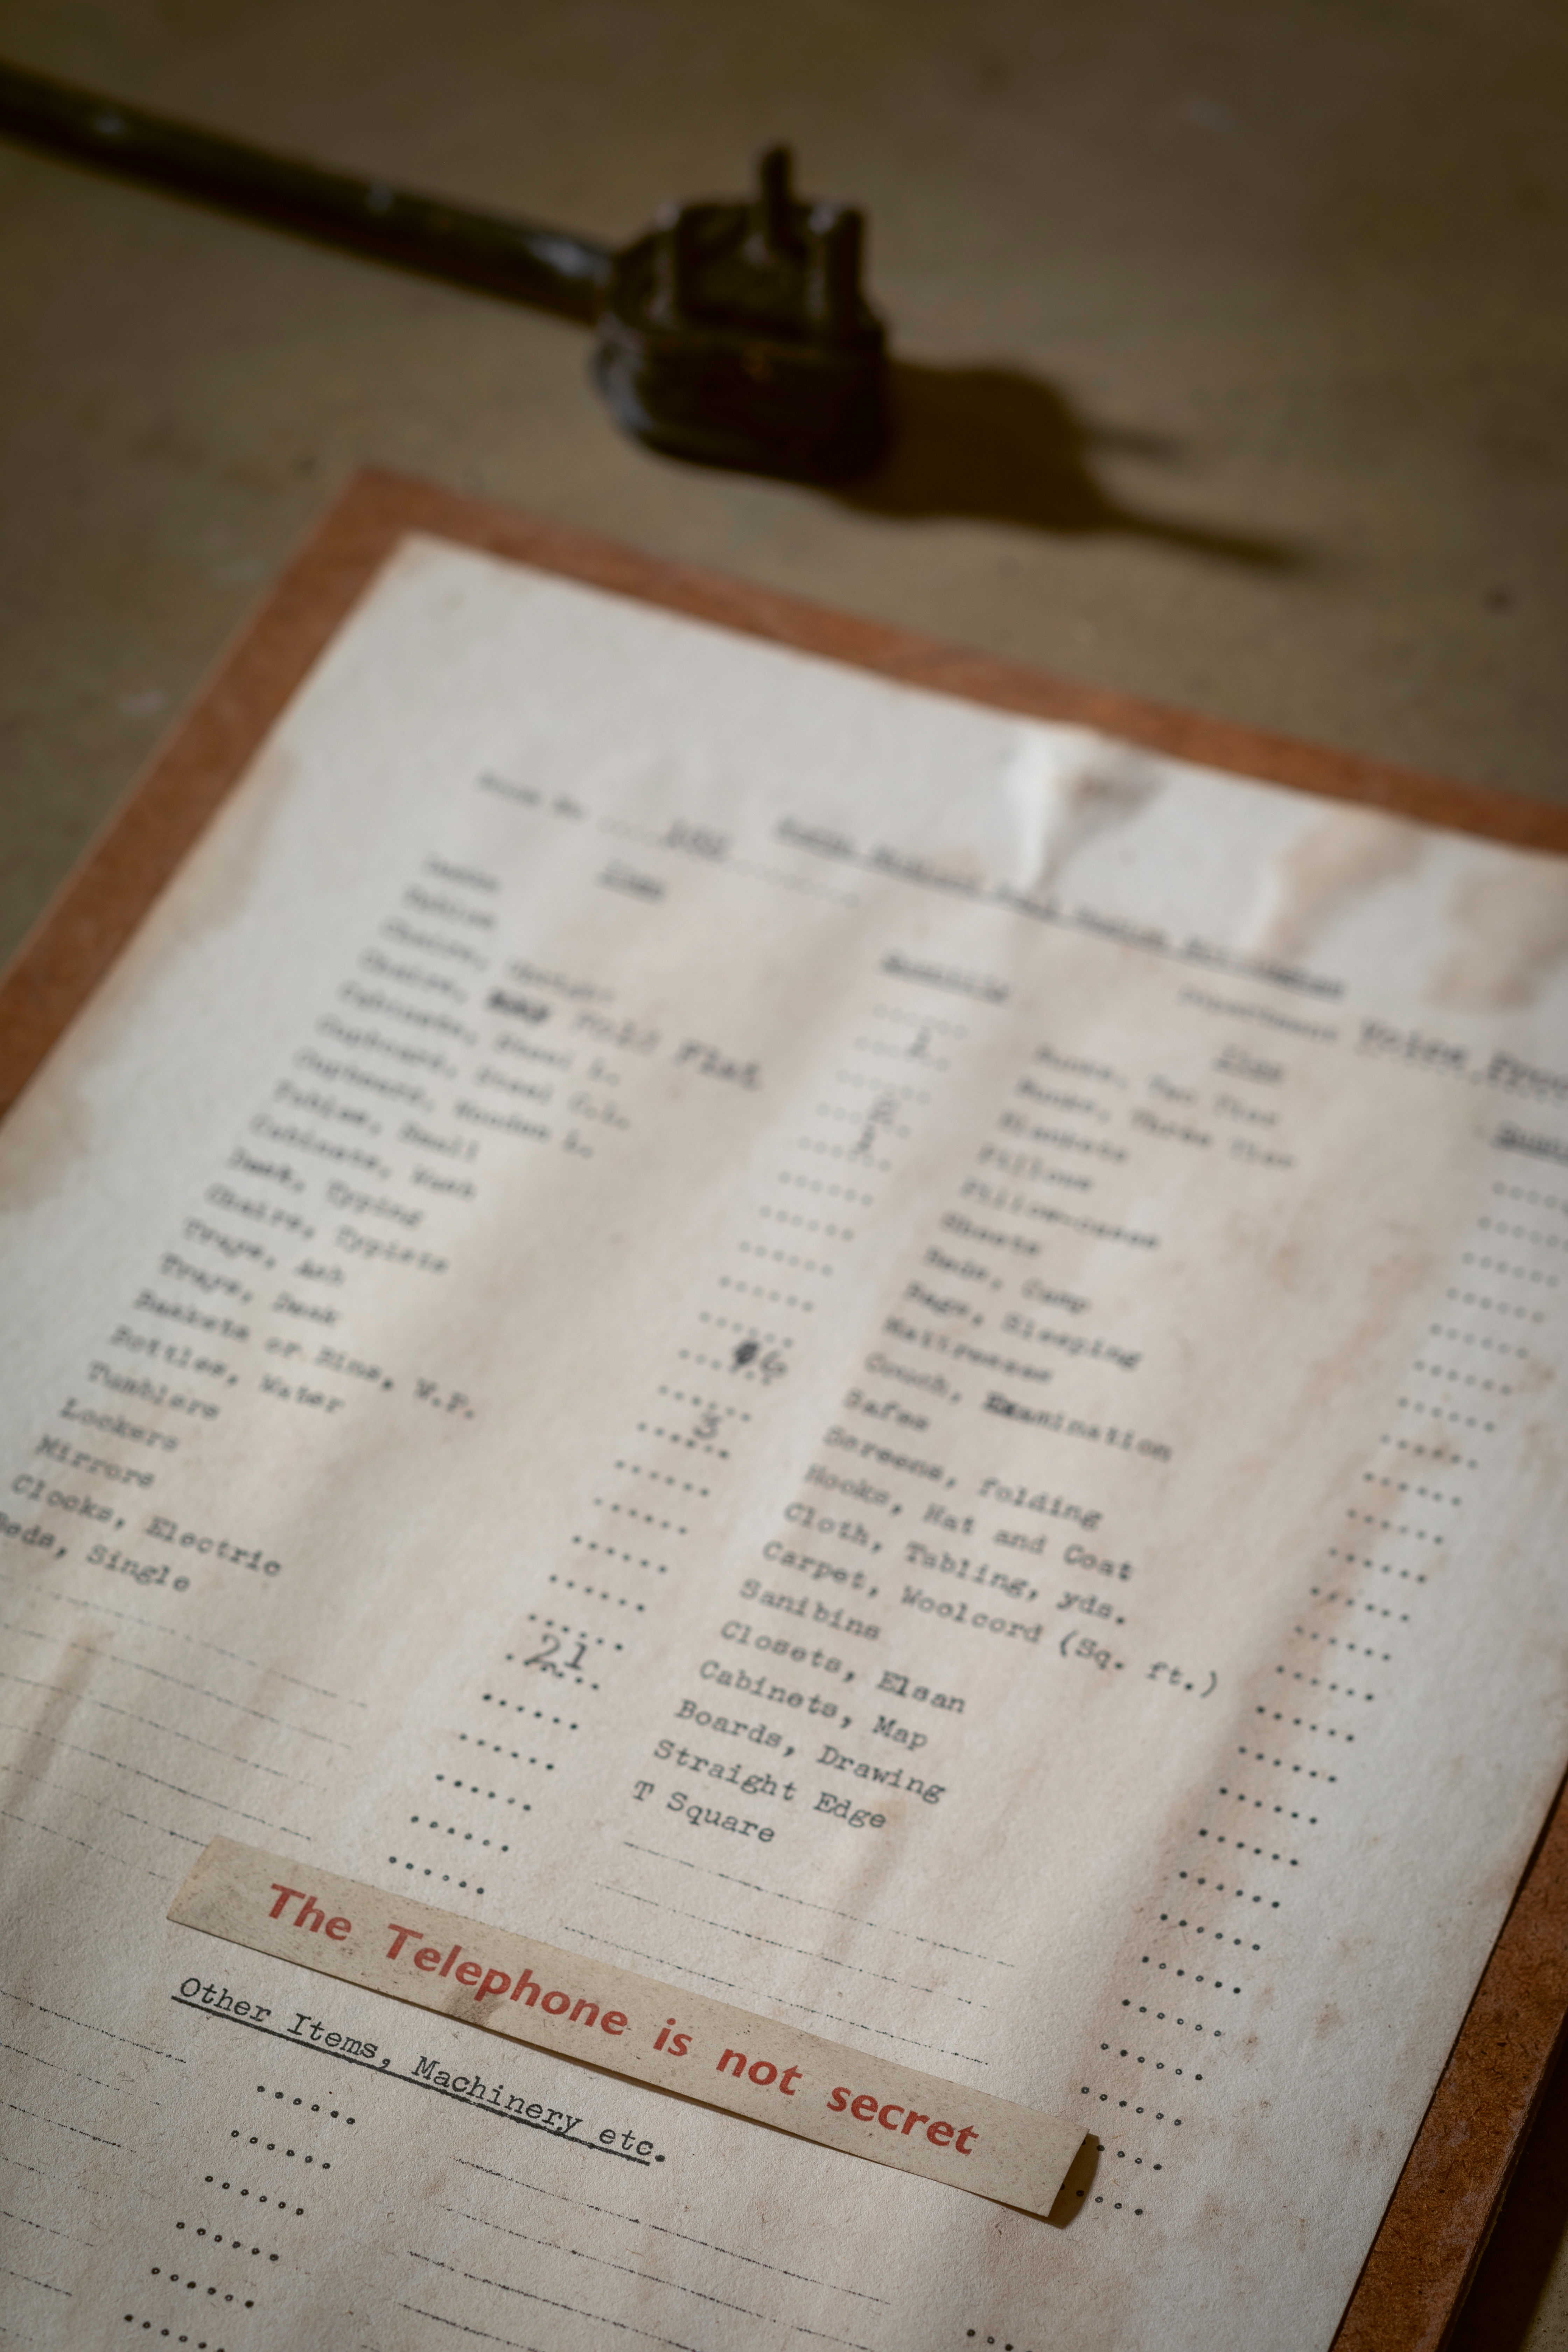 Item
Quantity
Chairs,
Chairs, Fold Flat
Cabinets, Steel
Cupboard, Steel
Cupboard, Wooden
Tables, Small
Cabinets, Wash
Desk, Typing
Chairs, Typists
Trays, Ash
Trays, Desk
Baskets or Bins, W.P.
Bottles, Water
Tumblers
Lockers
Mirrors
Clocks, Electric
Beds, Single
1
2
1
6
3
21
Item
Bunks, Two Tier
Bunks, Three Tier
Blankets
Pillows
Pillow-cases
Sheets
Beds, Camp
Bags, Sleeping
Mattresses
Couch, Examination
Safes
Screens, folding
Hooks, Hat and Coat
Cloth, Tabling, yds.
Carpet, Woolcord (Sq. ft.)
Sanibins
Closets, Elsan
Cabinets, Map
Boards, Drawing
Straight Edge
T Square
The Telephone is not secret
Other Items, Machinery etc.